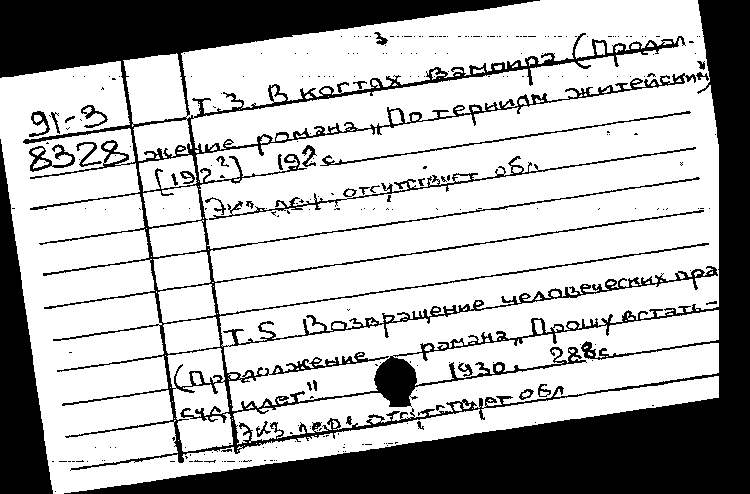 3
91-3
8328
Т.3. В когтях вампира (Продол-
жение романа „По терниям житейским")
[192?]. 192 с.
Экз. деф.: отсутствует обл
Т.5 Возвращение человеческих пра
(Продолжение романа „Прошу встать-
суд идет" 1930. 288с.
Экз. деф.: отсутствует обл